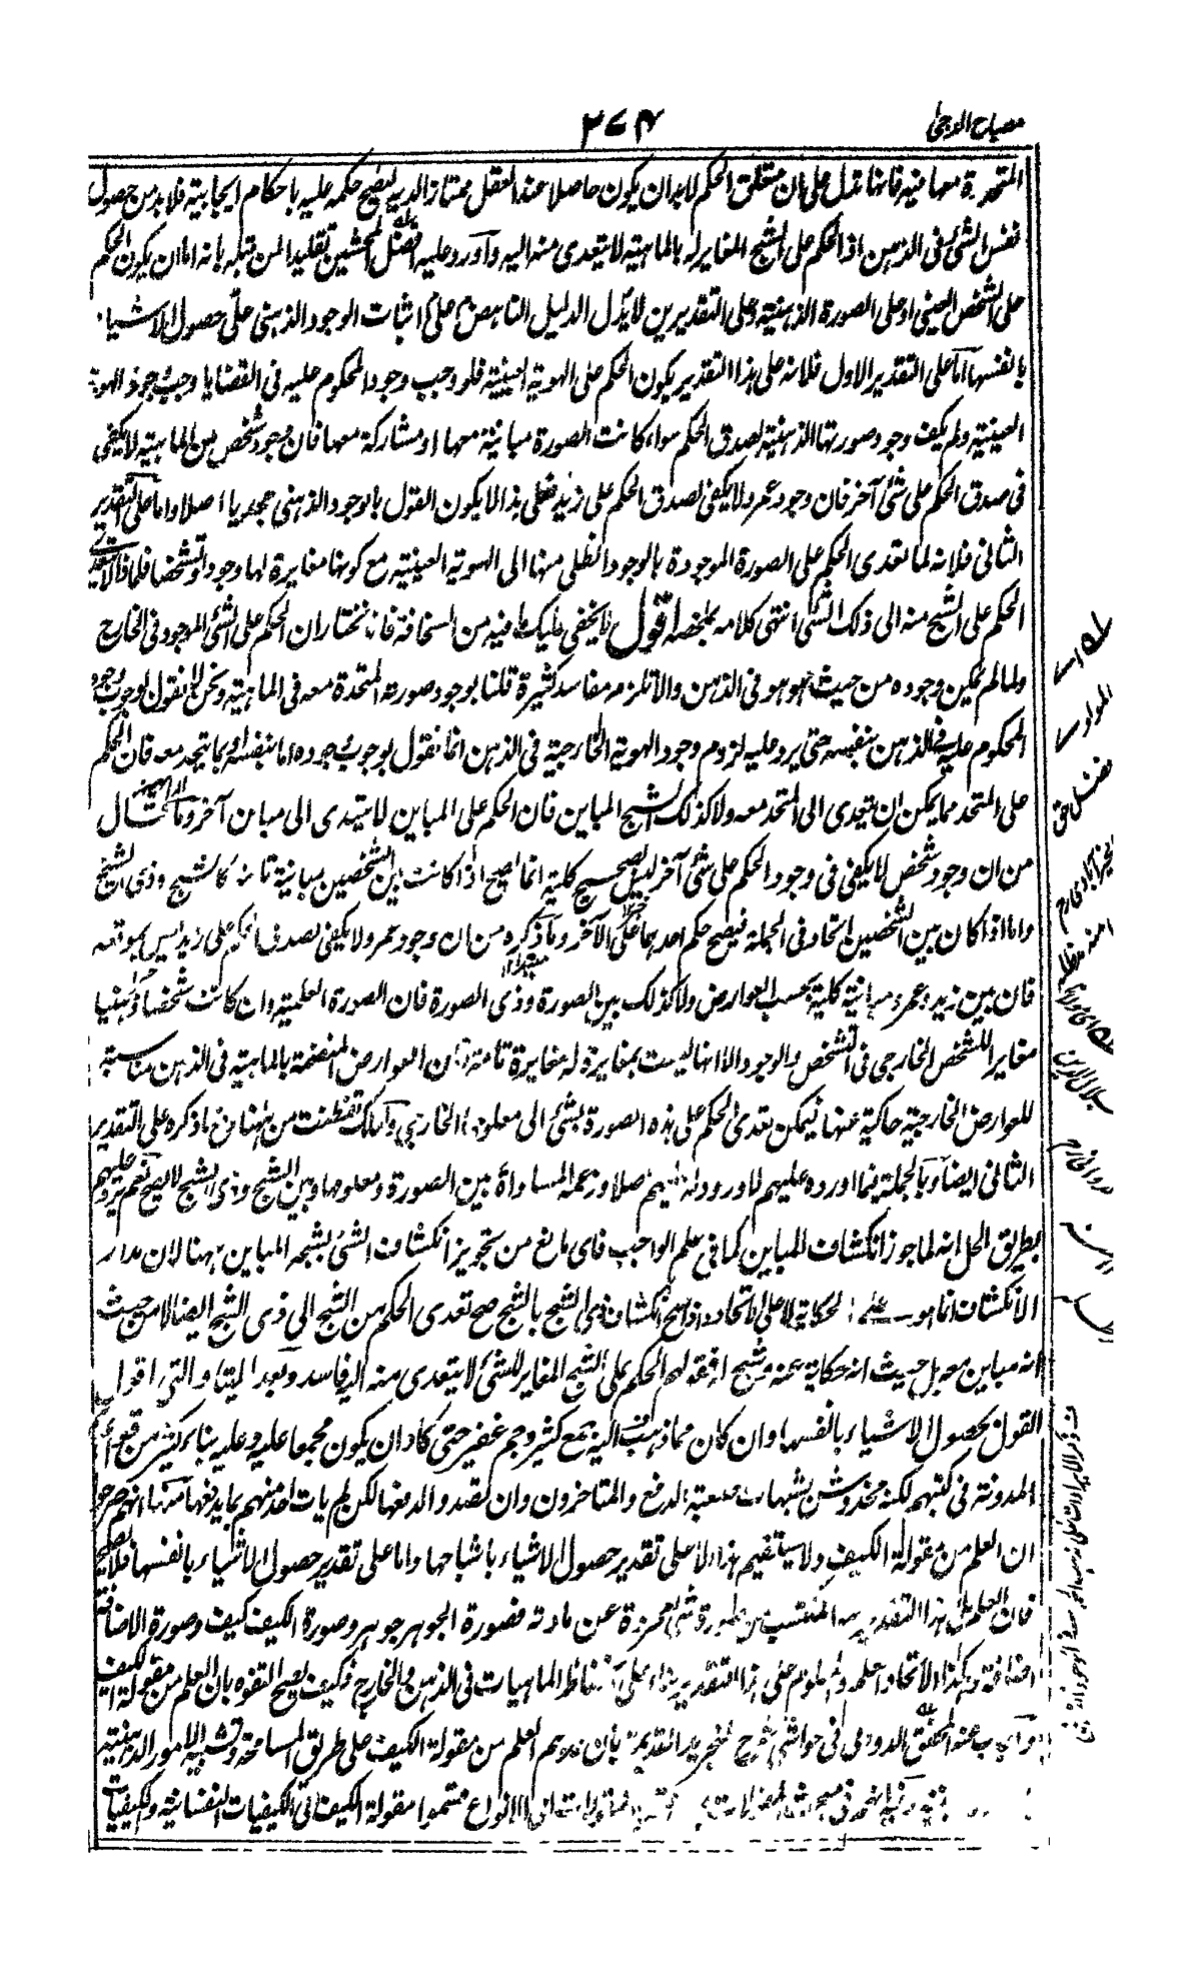 مصباح الدجى
٢٧٤
المتحدة معها فيه فانها تدل على ان متعلق الحكم لا بد ان يكون حاصلا عند العقل ممتازا لديه ليصح حكمه عليه باحكام ايجابية فلا بد من حصول
نفس الشئ فى الذهن اذ الحكم على الشبح المغاير له بالماهية لا يتعدى منه اليه وآورد عليه فضل المحشين تقليدا لمن قبله بانه اما ان يكون الحكم
على الشخص العينى او على الصورة الذهنية وعلى التقديرين لا يدل الدليل الناهض على اثبات الوجود الذهنى على حصول الاشياء
بانفسها اما على التقدير الاول فلانه على هذا التقدير يكون الحكم على الهوية العينية فلو وجب وجود المحكوم عليه فى القضايا وجب وجود الهوية
العينية ولم يكف وجود صورتها الذهنية لصدق الحكم سواء كانت الصورة مباينة معها او مشاركة معها فان وجود شخص من الماهية لا يكفى
فى صدق الحكم على شئ آخر فان وجود عمرو لا يكفى لصدق الحكم على زيد فعلى هذا لا يكون القول بالوجود الذهنى مجديا اصلا واما على التقدير
الثانى فلانه لما تعدى الحكم على الصورة الموجودة بالوجود الظلى منها الى الهوية العينية مع كونها مغايرة لها وجودا وتشخصا فلماذا لا يتعدى
الحكم على الشبح منه الى ذلك الشئ انتهى كلامه بملخصه اقول لا يخفى عليك ما فيه من السخافة فانا نختار ان الحكم على الشئ الموجود فى الخارج
ولما لم يمكن وجوده من حيث هو هو فى الذهن والا تلزم مفاسد كثيرة قلنا بوجود صورته المتحدة معه فى الماهية ونحن لا نقول بوجوب وجود
المحكوم عليه فى الذهن بنفسه حتى يرد عليه لزوم وجود الهوية الخارجية فى الذهن انما نقول بوجوب وجوده اما بنفسه او بما يتحد معه فان الحكم
على المتحد مما يمكن ان يتعدى الى المتحد معه ولا كذلك الشبح المباين فان الحكم على المباين لا يتعدى الى مباين آخر وما قال
من ان وجود شخص لا يكفى فى وجود الحكم على شئ آخر ليس بصحيح كلية انما يصح اذا كانت بين الشخصين مباينة تامة كالشبح وذى الشبح
واما اذا كان بين الشخصين اتحاد فى الجملة فيصح حكم احدهما على الآخر وما ذكره من ان وجود عمرو لا يكفى لصدق الحكم على زيد ليس بموقعه
فان بين زيد وعمرو مباينة كلية بحسب العوارض ولا كذلك بين الصورة وذى الصورة فان الصورة العلمية وان كانت شخصا ذهنيا
مغايرا للشخص الخارجى فى التشخص والوجود الا انها ليست بمغايرة له مغايرة تامة فان العوارض المنضمة بالماهية فى الذهن مناسبة
للعوارض الخارجية حاكية عنها فيمكن تعدى الحكم على هذه الصورة بشئ الى معلومها الخارجى ولعلك تفطنت من ههنا ما ذكره على التقدير
الثانى ايضا وبالجملة فما اورده عليهم لا ورود له عليهم اصلا وزعمه المساواة بين الصورة ومعلومها وبين الشبح وذى الشبح لا يصح نعم يرد عليهم
بطريق الحل انه لما جوز انكشاف المباين كما فى علم الواجب فاى مانع من تجويز انكشاف الشئ بشبحه المباين ههنا لان مدار
الانكشاف انما هو على الحكاية لا على الاتحاد واذا صح انكشاف ذى الشبح بالشبح صح تعدى الحكم من الشبح الى ذى الشبح ايضا لا من حيث
انه مباين معه بل حيث انه حكاية عنه وشبح له فقولهم الحكم على الشبح المغاير للشئ لا يتعدى منه اليه فاسد وبعد اللتيا والتى اقول
القول بحصول الاشياء بانفسها وان كان مما ذهب اليه جمع كثير وجم غفير حتى كاد ان يكون مجمعا عليه وعليه بناء كثير من
المدونة فى كتبهم لكنه مخدوش بشبهات صعبة الدفع والمتاخرون وان قصدوا لدفعها لكن لم يات احد منهم بما يدفعها منها انهم صرحوا
ان العلم من مقولة الكيف ولا يستقيم هذا الا على تقدير حصول الاشياء باشباحها واما على تقدير حصول الاشياء بانفسها فلا يصح
فان العلم على هذا التقدير هو المنتسب من صورة شئ مجردة عن مادته فصورة الجوهر جوهر وصورة الكيف كيف وصورة الاضافة
اضافة وهكذا لاتحاد العلم والمعلوم على هذا التقدير بناء على انحفاظ الماهيات فى الذهن والخارج فكيف يصح التفوه بان العلم من مقولة الكيف
واجاب عنه المحقق الدوانى فى حواشى شرح التجريد القديمة بان عدهم العلم من مقولة الكيف على طريق المسامحة وتشبيه الامور الذهنية
المقولات الى الانواع قسموا مقولة الكيف الى الكيفيات النفسانية والكيفيات
المولوى
فضل حق
الخيرآبادى
جلال الدين
الدوانى